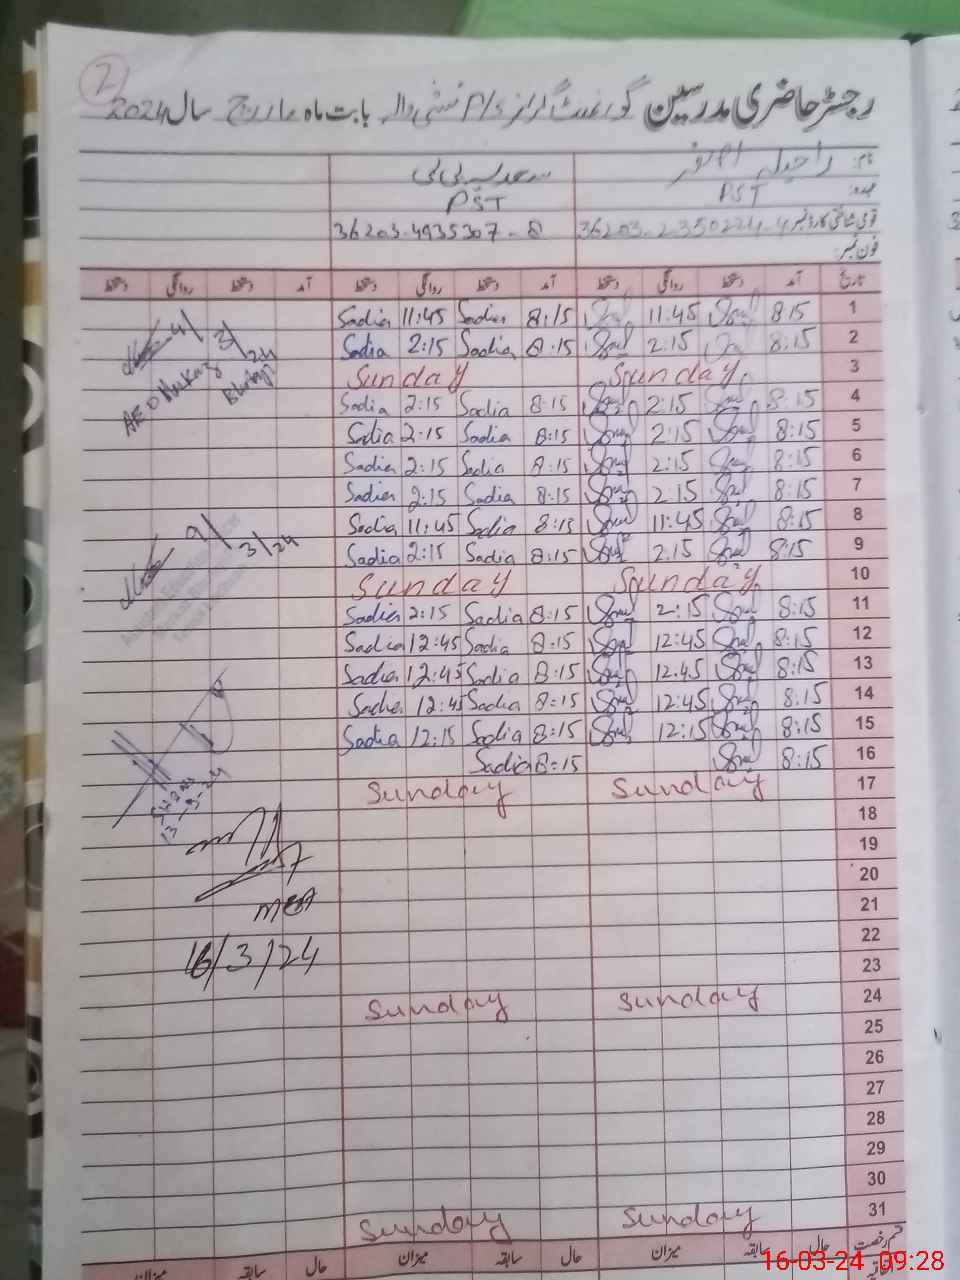 2
رجسٹر حاضری مدرسین گورنمنٹ گرلز P/S بابت ماہ مارچ سال 2024
نام: راحیلہ سعدیہ بی بی
عہدہ: PST PST
قومی شناختی کارڈ نمبر 36203-2350224-4 36203-4935307-8
فون نمبر:
تاریخ آمد دستخط روانگی دستخط آمد دستخط روانگی دستخط آمد دستخط روانگی دستخط
1 8:15 11:45 8:15 Sadia 11:45 Sadia
2 8:15 2:15 8:15 Sadia 2:15 Sadia
3 Sunday Sunday
4 8:15 2:15 8:15 Sadia 2:15 Sadia
5 8:15 2:15 8:15 Sadia 2:15 Sadia
6 8:15 2:15 8:15 Sadia 2:15 Sadia
7 8:15 2:15 8:15 Sadia 2:15 Sadia
8 8:15 11:45 8:15 Sadia 11:45 Sadia
9 8:15 2:15 8:15 Sadia 2:15 Sadia
10 Sunday Sunday
11 8:15 2:15 8:15 Sadia 2:15 Sadia
12 8:15 12:45 8:15 Sadia 12:45 Sadia
13 8:15 12:45 8:15 Sadia 12:45 Sadia
14 8:15 12:45 8:15 Sadia 12:45 Sadia
15 8:15 12:15 8:15 Sadia 12:15 Sadia
16 8:15 8:15 Sadia
17 Sunday Sunday
18
19
20
21
22
23
24 Sunday Sunday
25
26
27
28
29
30
31 Sunday Sunday
قسم رخصت حالی سابقہ میزان حالی سابقہ میزان حالی سابقہ میزان
4/3/24
AEO
9/3/24
13-3-24
MEA
16/3/24
16-03-24 09:28